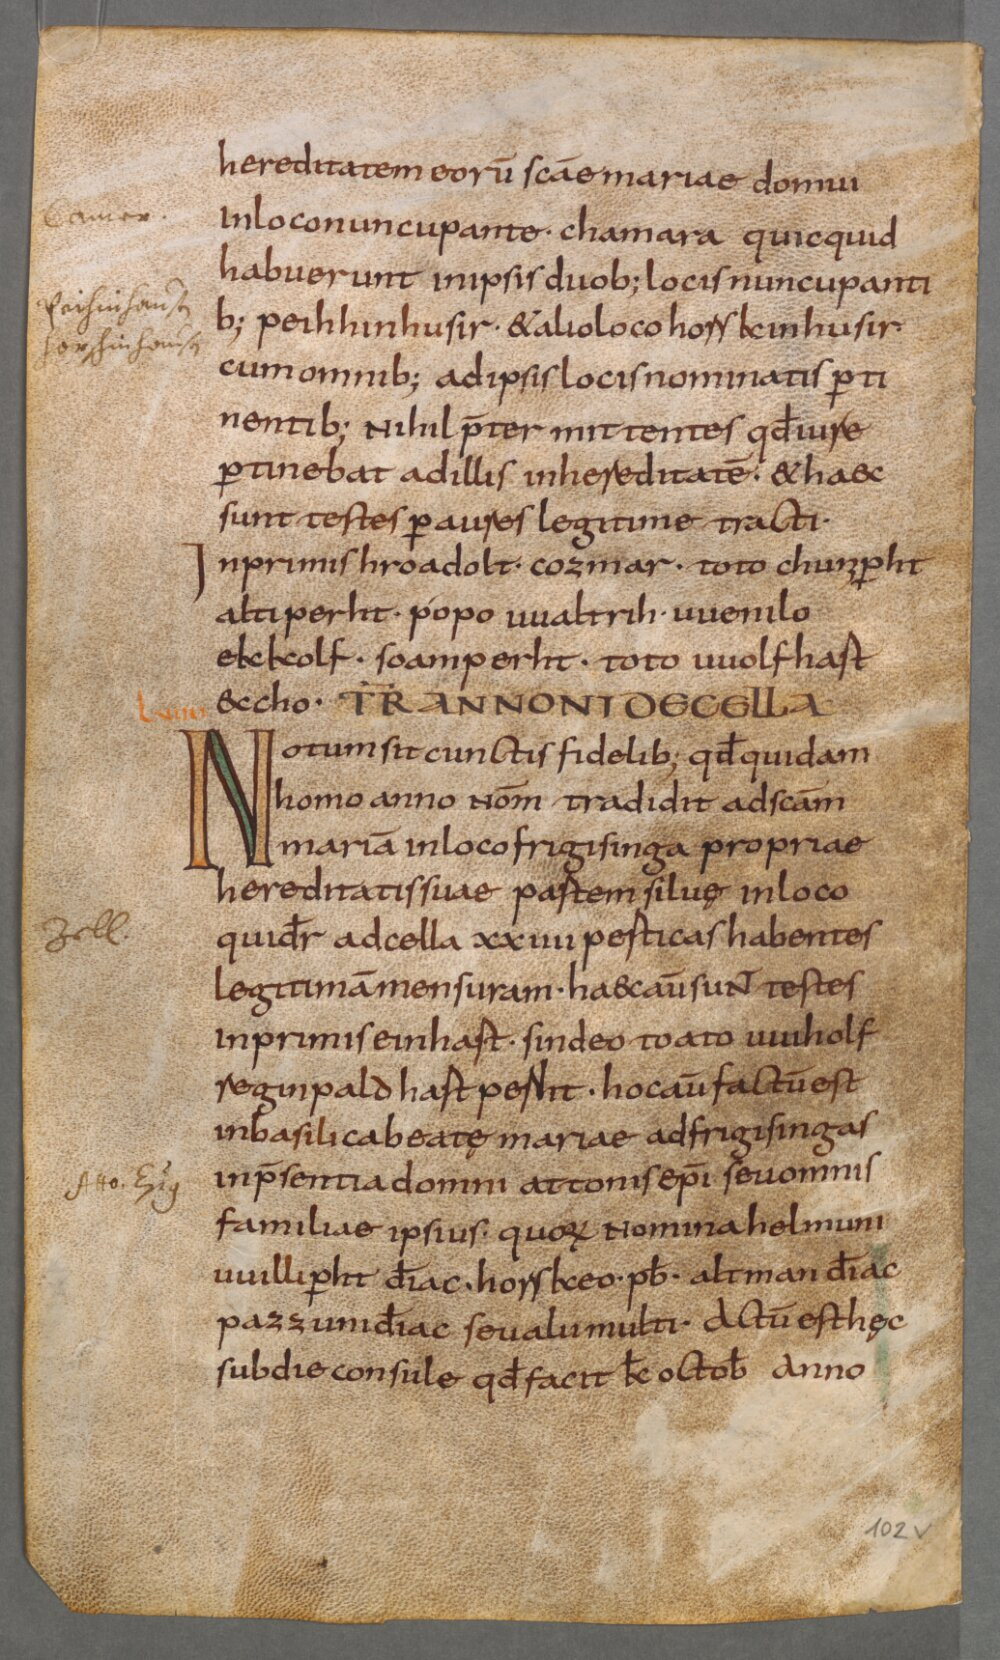 hereditatem eorū scāe mariae domui
Camer.
Inloconuncupante· chamara quicquid
habuerunt inipsis duob; locis nuncupanti
b; peihhinhusir· &alioloco horskeinhusir·
cumomnib; adipsis locisnominatis ꝑti
nentib; Nihil p̄ter mittentes qđiure
ꝑtinebat adillis inhereditatē· &ha&c
sunt testes ꝑ aures legitime tracti·
Inprimis hroadolt· cozmar· toto chunꝑht
altiperht· popo uualtrih· uuenilo
ekkolf· soamperht· toto uuolfhart
&cho· TR̄ ANNONI DE CELLA
Notum sit cunctis fidelib; qđ quidam
homo anno Nom̄ tradidit adscām
mariā inloco frigisinga propriae
hereditatis suae partem siluę inloco
Zell.
quidr̄ adcella xxiiii perticas habentes
legitimā mensuram· ha&c aū suNT testes
inprimis einhart· sindeo toato uuiholf
reginpald hartperht· hoc aū factū est
inbasilica beatę mariae adfrigisingas
Atto.
inp̄sentia domni attonis ep̄i seu omnis
familiae ipsius· quoꝝ Nomina helmuni
uuilliꝑht điac· horskeo· pb̄· altman điac
pazzuni điac seu alii multi· Actū est hęc
subdie consule qđ facit k̄ octob̄ Anno
102v